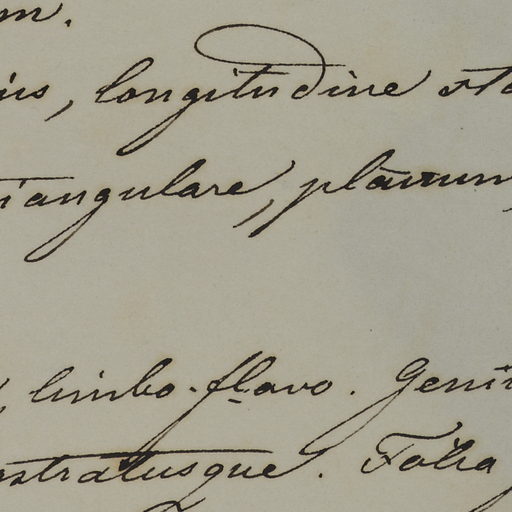 m.
is, longitudine sta
iangulare, planum,
, limbo flavo. Geni
stratusque. Folia